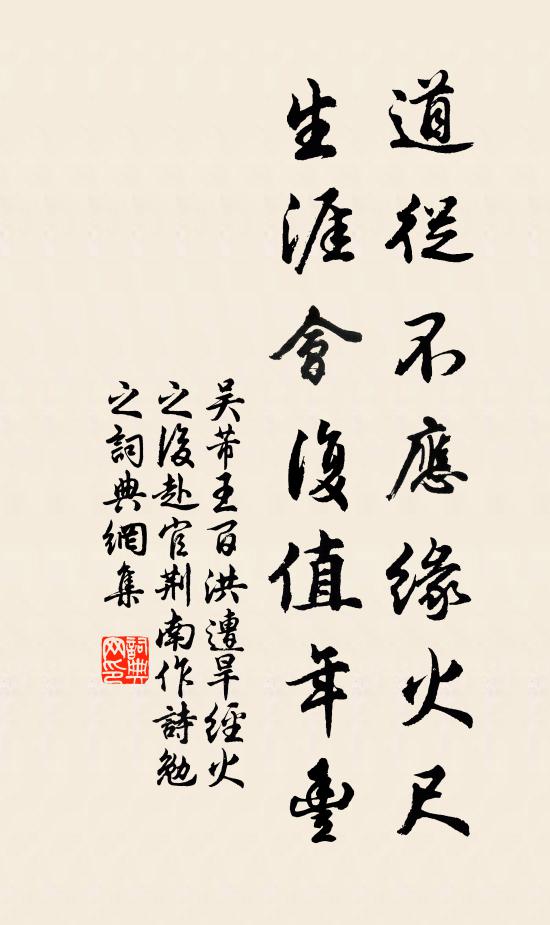 道從不應緣火尺
生涯會復值年豐
吳芾王百洪遭旱經火
之後赴官荆南作詩勉
之詞典網集
詞典
网印